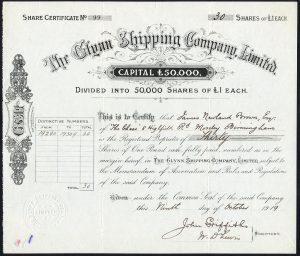 SHARE CERTIFICATE No 99
30 SHARES OF £1 EACH.
The Glynn Shipping Company, Limited.
CAPITAL £50,000.
DIVIDED INTO 50,000 SHARES OF £1 EACH.
DISTINCTIVE NUMBERS.
FROM TO
TOTAL 30
This is to Certify that James Newland Brown, Esq.
of The Close 8 Highfield Rd Moseley Birmingham
is the Registered Proprietor of Thirty
Shares of One Pound each fully paid numbered as in the
margin hereof in THE GLYNN SHIPPING COMPANY, LIMITED, subject to
the Memorandum of Association and Rules and Regulations
of the said Company.
Given under the Common Seal of the said Company
this Ninth day of October 1919
John Griffiths
W. D. Lewis